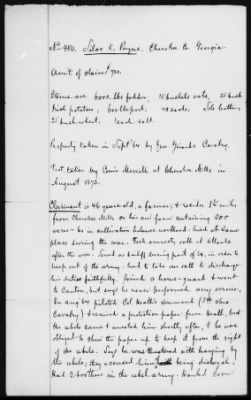 No 460. Silas C. Payne, Cherokee Co. Georgia
Am't of claim $ 700.
Items are 6000. lbs fodder, 75 bushels oats, 25 bush
Irish potatoes, 600 lbs pork, 40 sacks. 50 lbs butter,
25 bush wheat. 1 sack salt.
Property taken in Sept 64 by Gen. Cavalry.
Test. taken by Com'r Merrell at Cherokee Mills in
August 1873.
Claimant is 46 years old, a farmer, & resides 5½ miles
from Cherokee Mills on his own farm containing 200
acres - in cultivation balance woodland - lived at same
place during the war. Took amnesty oath at Atlanta
after the war. Served as bailiff during part of 64, in order to
keep out of the army, & had to take an oath to discharge
his duties faithfully, joined a home-guard & went
to Canton, but says he never performed any service.
In Aug 64 piloted Col. Heath's command (5th Ohio
Cavalry) & received a protection paper from Heath, but
the rebels came & arrested him shortly after, & he was
obliged to chew the paper up to keep it from the sight
of the rebels. Says he was threatened with hanging by
the rebels, they accused him of being disloyal.
Had 2 brothers in the rebel army. Hauled corn